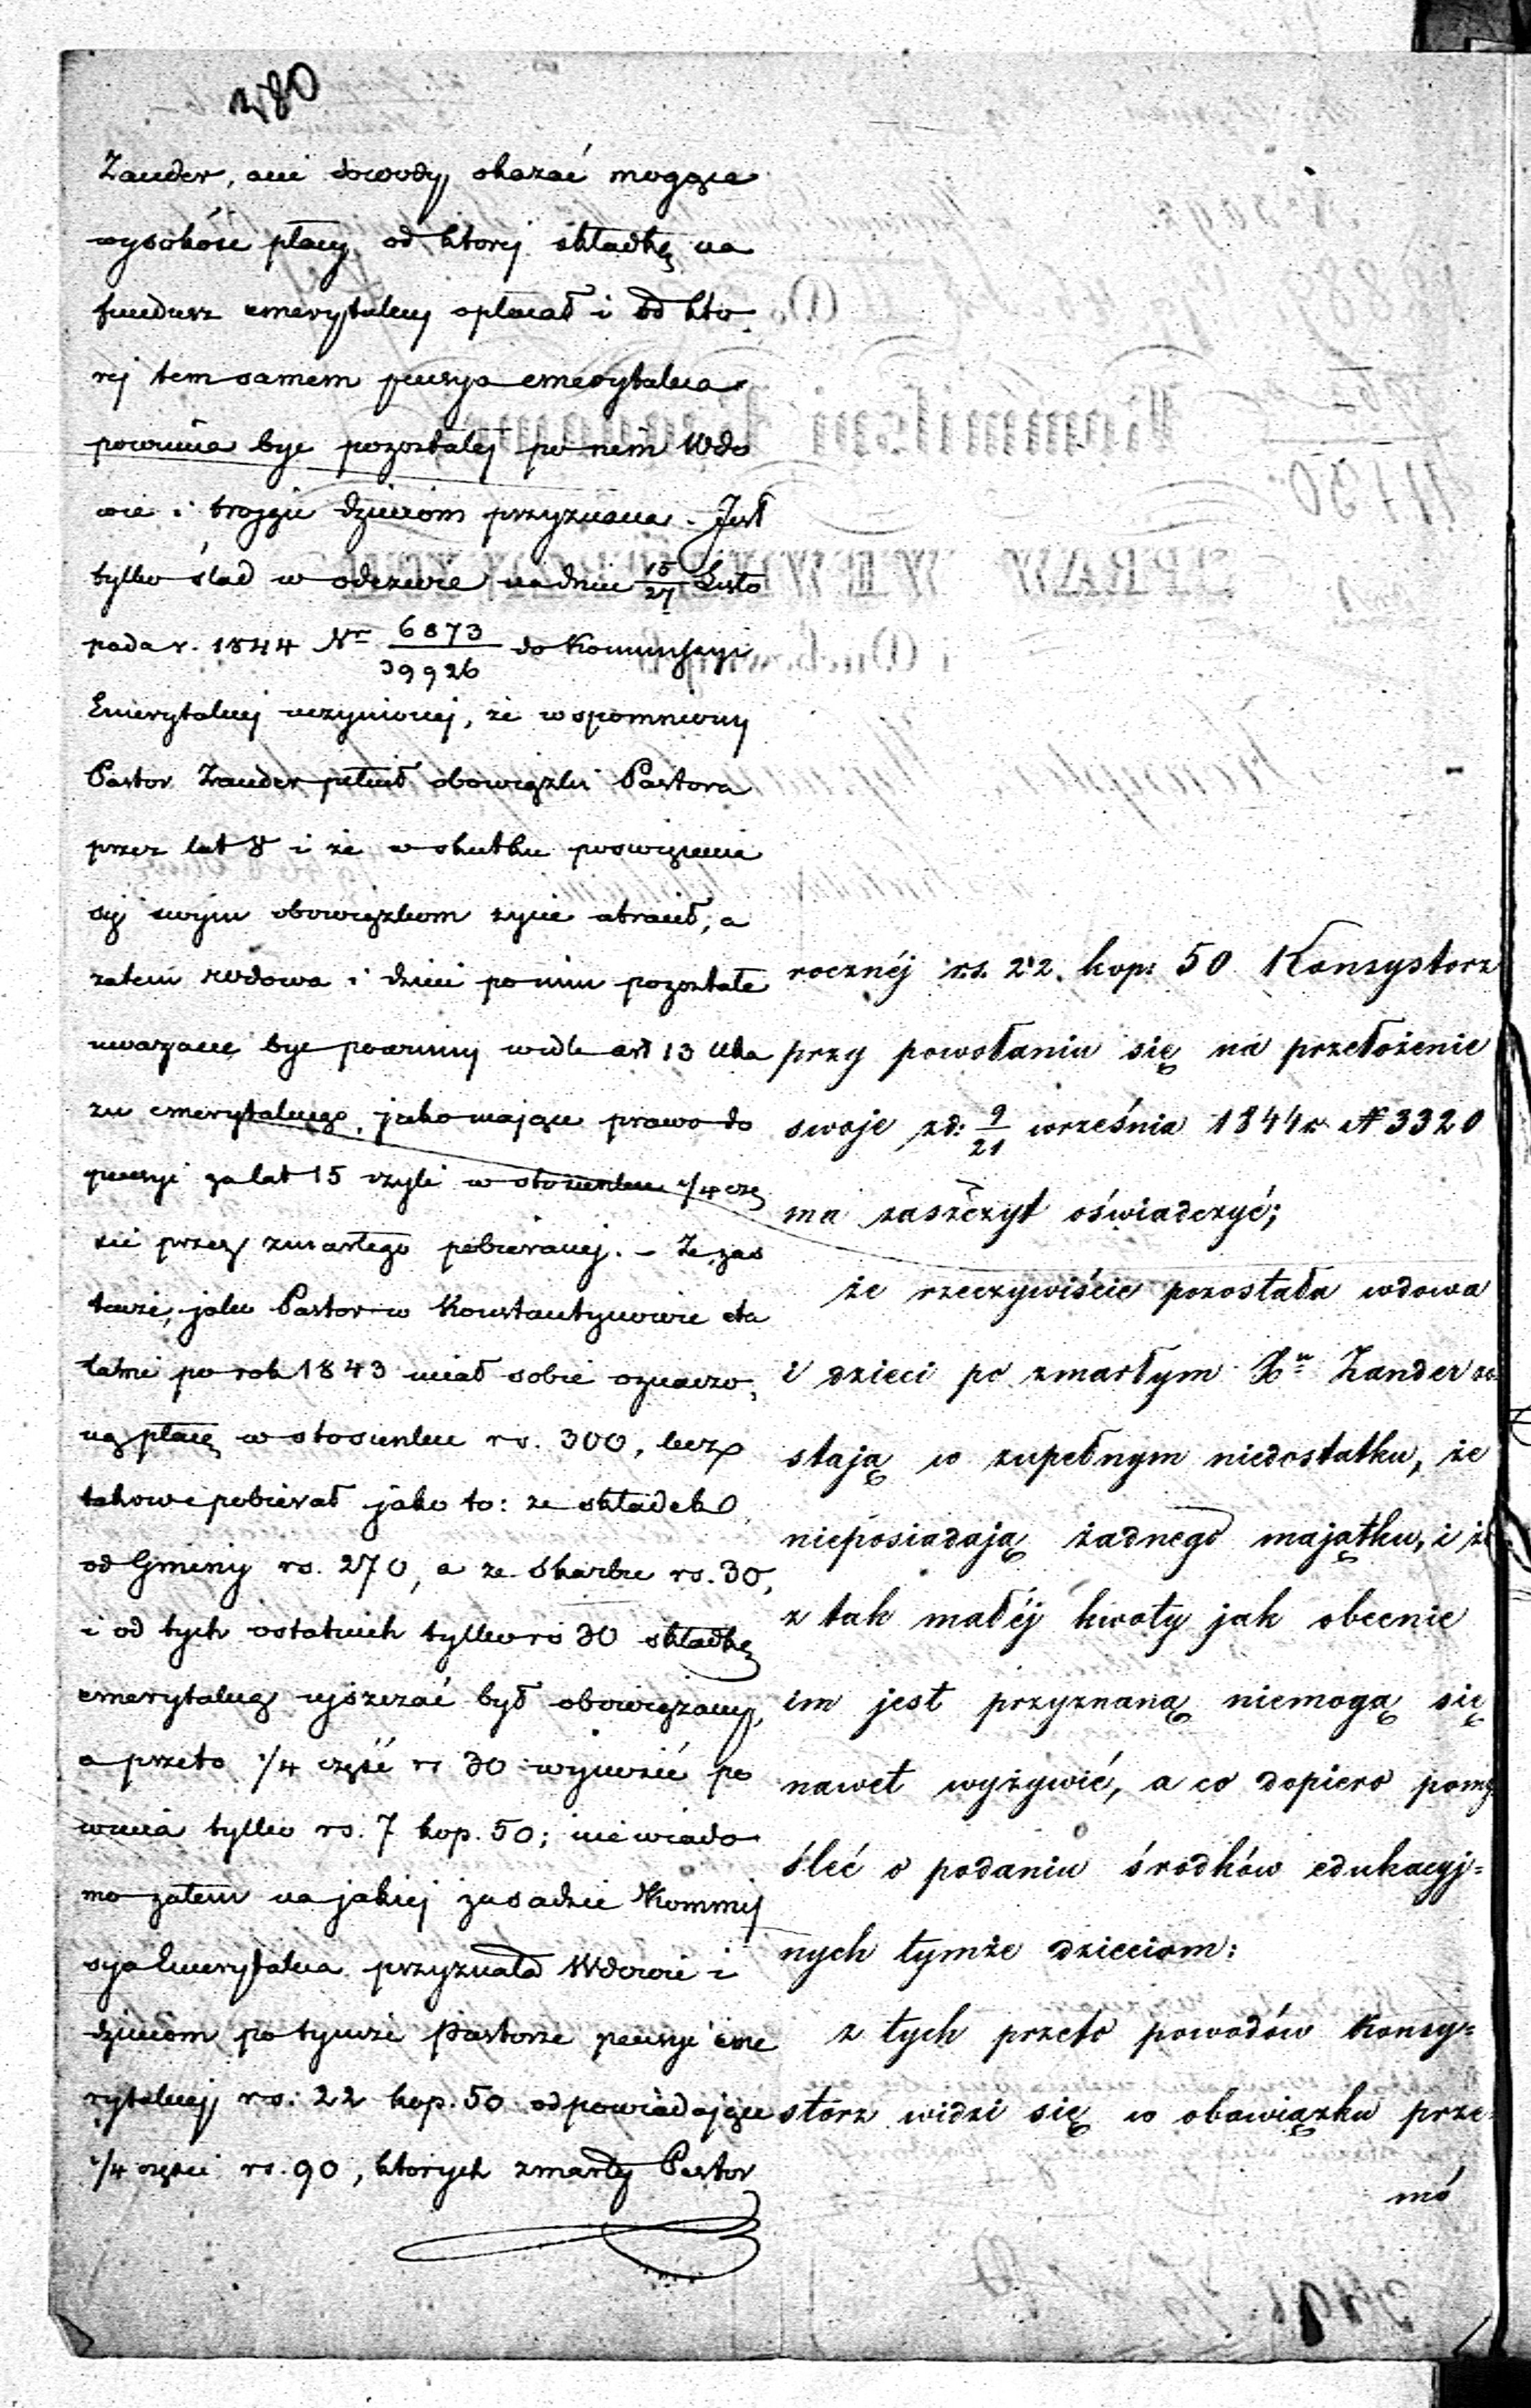 280
Zander, ani dowody okazać mogące
wysokość płacy od ktorej składkę na
fundusz emerytalny opłacał i od kto
rej tem samem pensya emerytalna
powinna byc pozostałej po nem Wdo
wie i trojgu dzieciom przyznana. Jest
tylko ślad w odezwie na dniu 15/27 Listo
pada r. 1844 Nr 6873/39926 do Kommissyi
Emerytalnej uczynionej, że wspomniony
Pastor Zander pełnił obowiązki Pastora
przez lat 8 i że w skutku poswięcenia
się swym obowiązkom życie utracił, a
zatem wdowa i dzieci po nim pozostałe
uwazane byc powinny wedle art 13 Uka
zu emerytalnego, jako mające prawo do
pensyi za lat 15 czyli w stosunku 1/4 czę
sci przez zmarłego pobieranej. – Ze zas
tenże, jako Pastor w Konstantynowie eta
tami po rok 1843 miał sobie oznaczo,
ną płacę w stosunku rs. 300, lecz
takowe pobierał jako to: ze składek
od Gminy rs. 270, a ze Skarbu rs. 30,
i od tych ostatnich tylko rs 30 składkę
emerytalną uiszczać był obowiązany,
a przeto 1/4 część rs 30 wynosić po
winna tylko rs. 7 kop. 50; nie wiado
mo zatem na jakiej zasadzie Kommis
sya Emerytalna przyznała Wdowie i
dzieciom po tymże Pastorze pensyi eme
rytalnej rs. 22 kop. 50 odpowiadające
1/4 części rs. 90, ktorych zmarły Pastor
rocznéj rs. 22. kop: 50 Konsystorz
przy powołaniu się na przełożenie
swoje z d: 9/21 września 1844 r. N 3320
ma zaszczyt oświadczyć;
że rzeczywiście pozostała wdowa
i dzieci po zmarłym Xu Zander zo
stają w zupełnym niedostatku, że
nieposiadają żadnego majątku, i że
z tak małéj kwoty jak obecnie
im jest przyznaną niemogą się
nawet wyżywić, a co dopiero pomy
śleć o podaniu środków edukacyj=
nych tymże dzieciom:
z tych przeto powodów Konsy=
storz widzi się w obowiązku prze=
mó